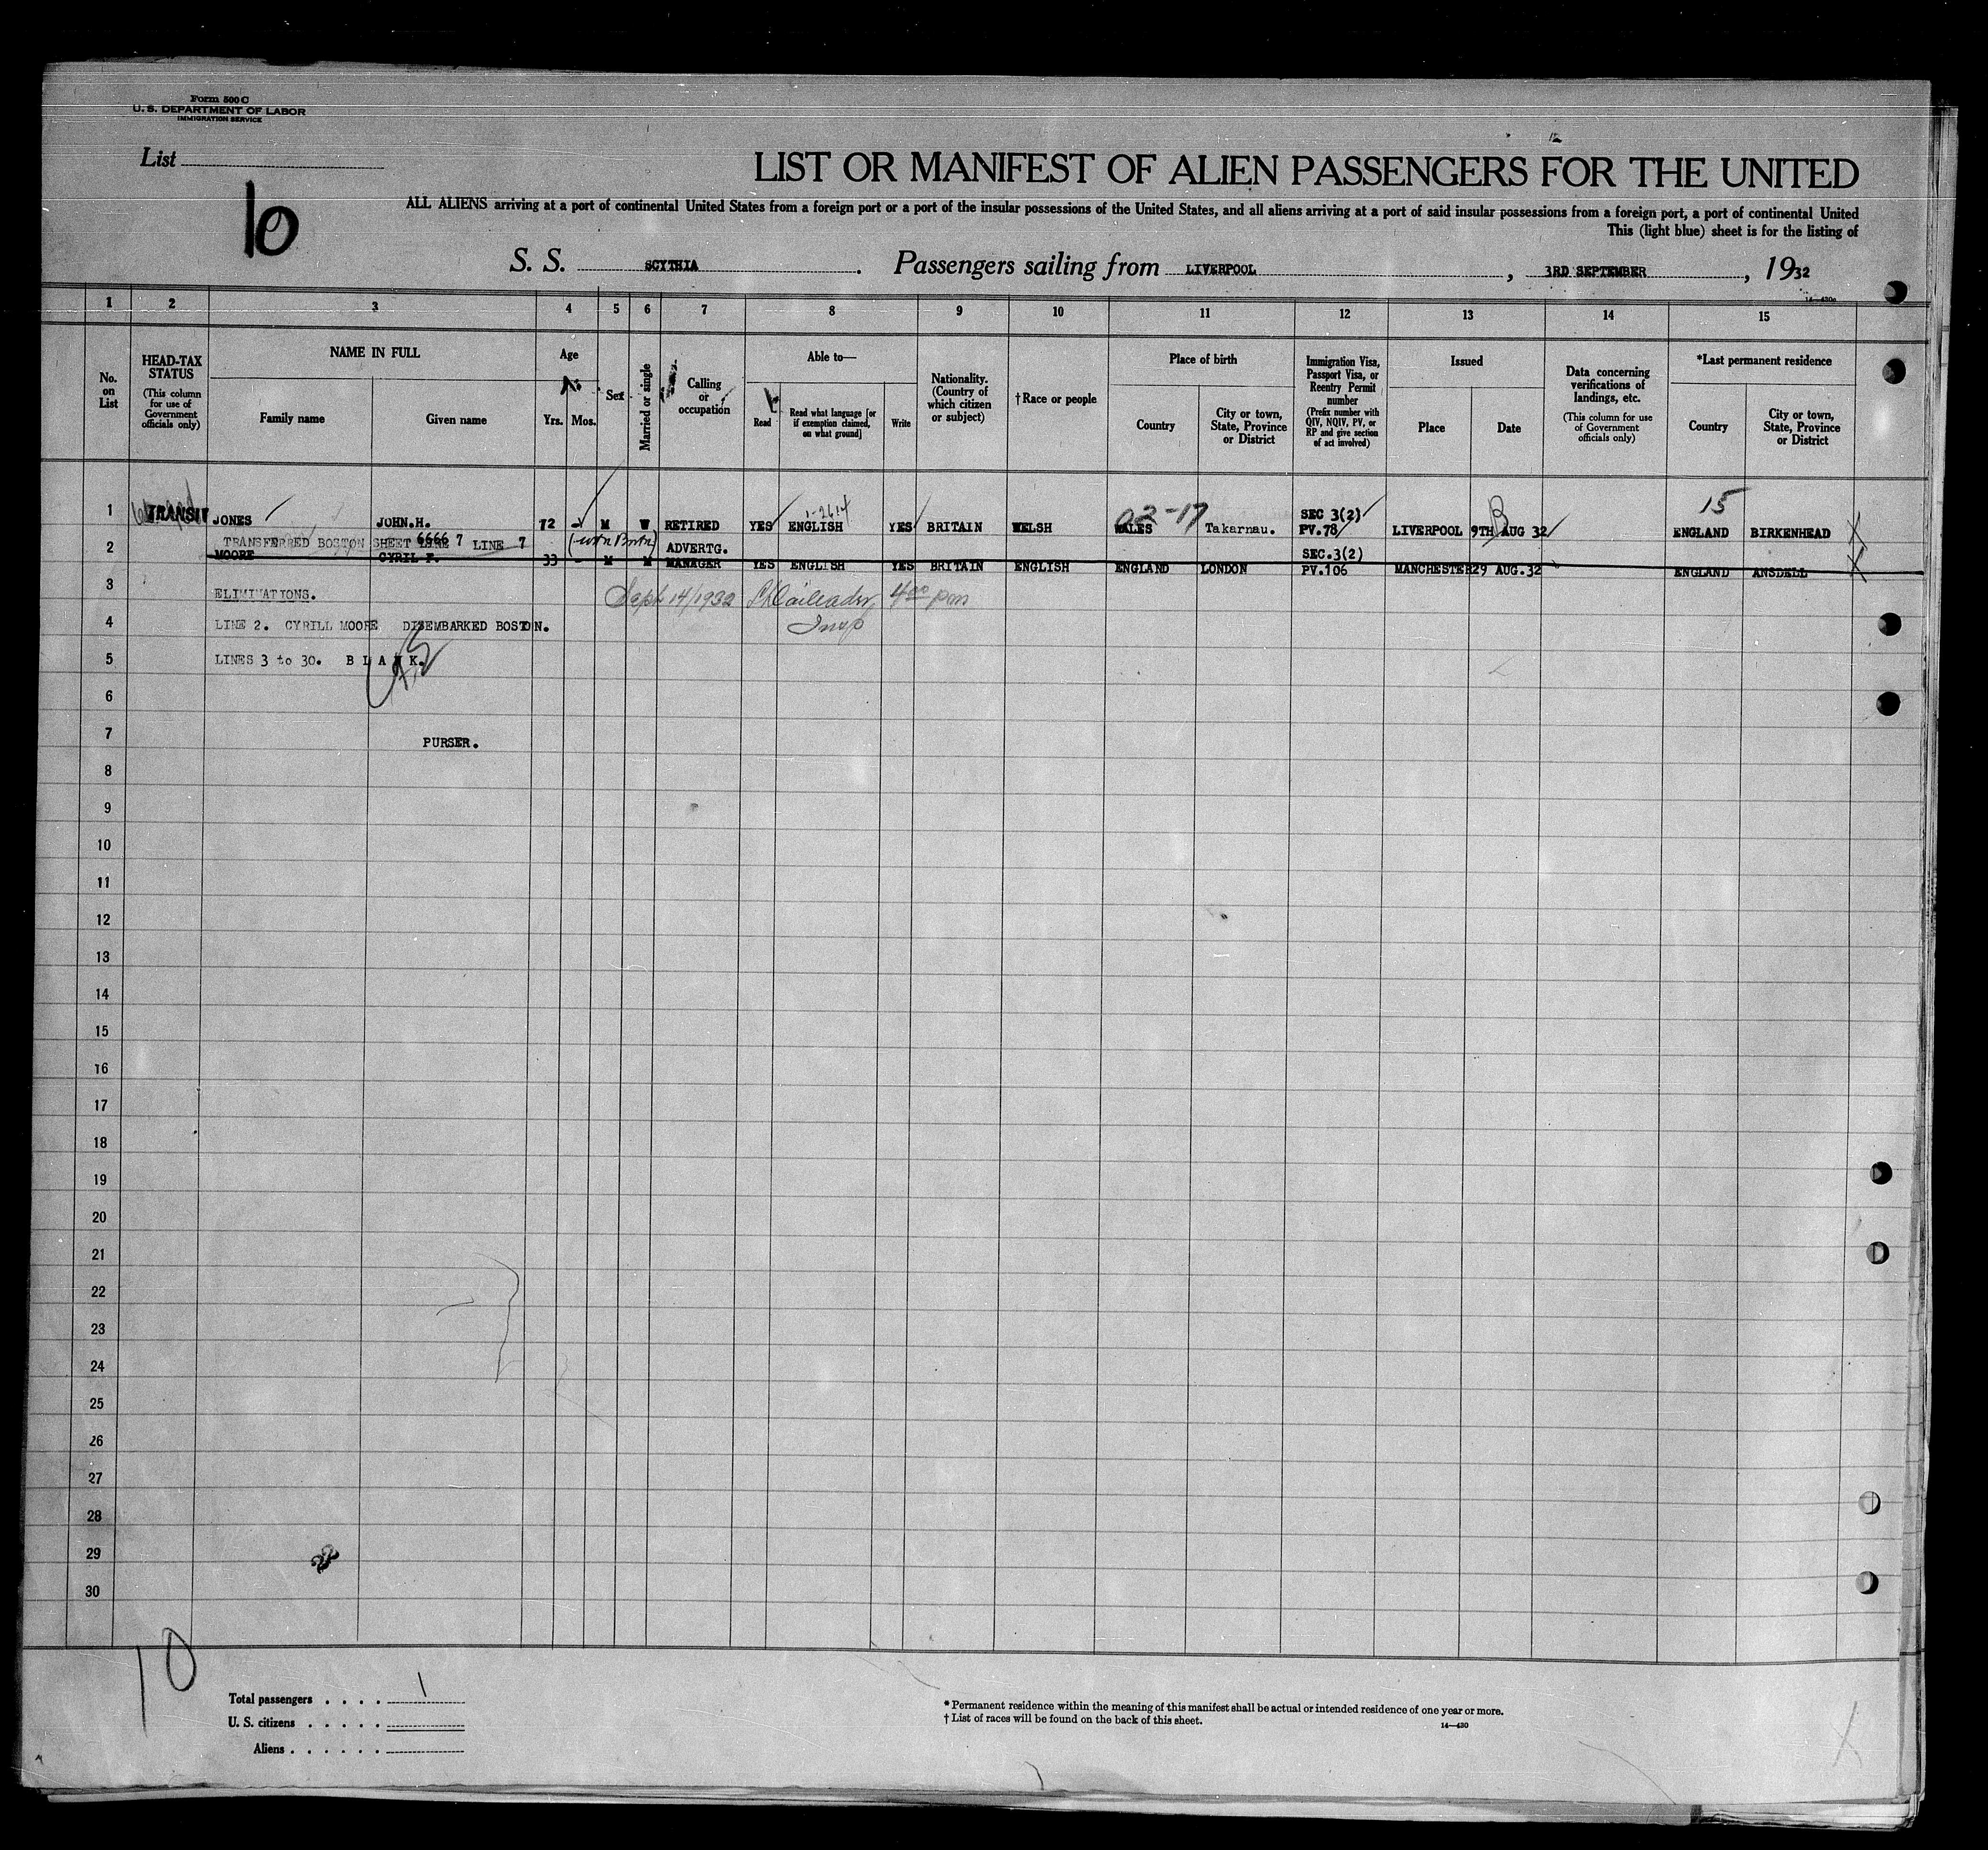 Form 500 C
U. S. DEPARTMENT OF LABOR
IMMIGRATION SERVICE
List
10
12
LIST OR MANIFEST OF ALIEN PASSENGERS FOR THE UNITED
ALL ALIENS arriving at a port of continental United States from a foreign port or a port of the insular possessions of the United States, and all aliens arriving at a port of said insular possessions from a foreign port, a port of continental United
This (light blue) sheet is for the listing of
S. S. SCYTHIA. Passengers sailing from LIVERPOOL, 3RD SEPTEMBER, 1932
14—430a
1 2 3 4 5 6 7 8 9 10 11 12 13 14 15
No. on List
HEAD-TAX STATUS (This column for use of Government officials only)
NAME IN FULL
Family name
Given name
Age
Yrs. Mos.
Sex
Married or single
Calling or occupation
Able to—
Read
Read what language [or if exemption claimed, on what ground]
Write
Nationality. (Country of which citizen or subject)
†Race or people
Place of birth
Country
City or town, State, Province or District
Immigration Visa, Passport Visa, or Reentry Permit number (Prefix number with QIV, NQIV, PV, or RP and give section of act involved)
Issued
Place
Date
Data concerning verifications of landings, etc. (This column for use of Government officials only)
*Last permanent residence
Country
City or town, State, Province or District
1-2614 02-17 SEC 3(2) B 15
1 TRANSIT JONES JOHN.H. 72 - M W RETIRED YES ENGLISH YES BRITAIN WELSH WALES Takarnau. PV.78 LIVERPOOL 9TH AUG 32 ENGLAND BIRKENHEAD X
TRANSFERRED BOSTON SHEET 6666 7 LINE 7
2 MOORE CYRIL F. 33 - M M ADVERTG. MANAGER YES ENGLISH YES BRITAIN ENGLISH ENGLAND LONDON SEC.3(2) PV.106 MANCHESTER 29 AUG.32 ENGLAND ANSDELL X
3 ELIMINATIONS. Sept 14/1932 4 00 pm
4 LINE 2. CYRILL MOORE DISEMBARKED BOSTON. Insp
5 LINES 3 to 30. B L A N K.
6
7 PURSER.
8
9
10
11
12
13
14
15
16
17
18
19
20
21
22
23
24
25
26
27
28
29
30
10
Total passengers . . . . 1
U. S. citizens . . . . .
Aliens . . . . . .
* Permanent residence within the meaning of this manifest shall be actual or intended residence of one year or more.
† List of races will be found on the back of this sheet.
14—430
X